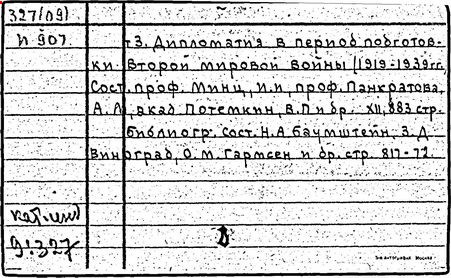 327(09)
И 907
т3. Дипломатия в период подготов-
ки Второй мировой войны (1919-1939гг.
Сост. проф. Минц, И.И, проф. Панкратова,
А.М, акад Потемкин, В.П и др. XII, 883 стр.
библиогр. сост. Н.А баумштейн, З.Д
Виноград, О.М. Гармсен и др. стр. 817-72.
9:327